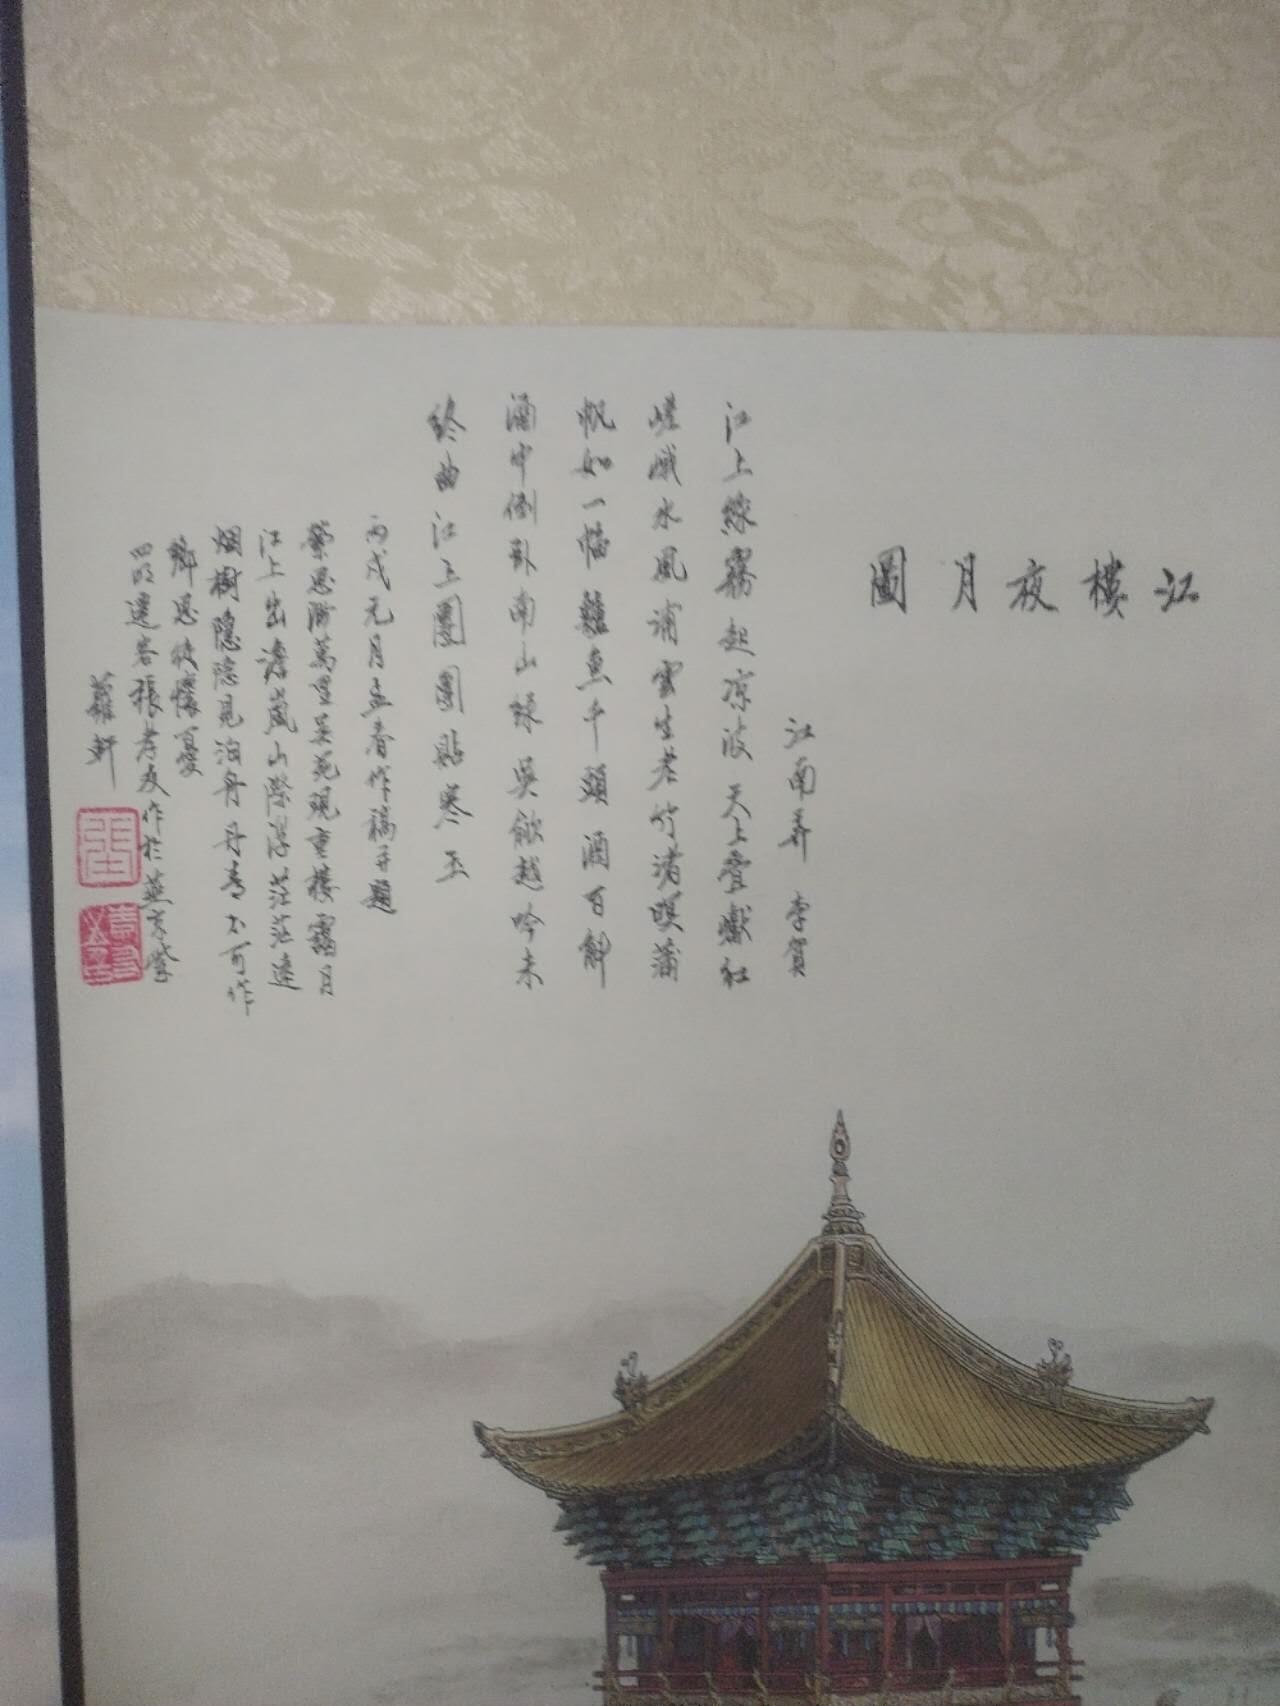 江樓夜月圖
江南弄 李賀
江上綠霧起凉波天上叠巘紅
嵯峨水風浦雲生老竹渚暝蒲
帆如一幅鱸魚千頭酒百斛
酒中倒卧南山綠吳歈越吟未
終曲江上團團貼寒玉
丙戌元月孟春作稿并題
縈思渺萬里吴苑現重樓靄月
江上出嵐山際浮茫茫遠
烟樹隱隱見泊舟丹青不可作
鄉思徒懷憂
四明遷客張孝友作於燕京紫
蘿軒